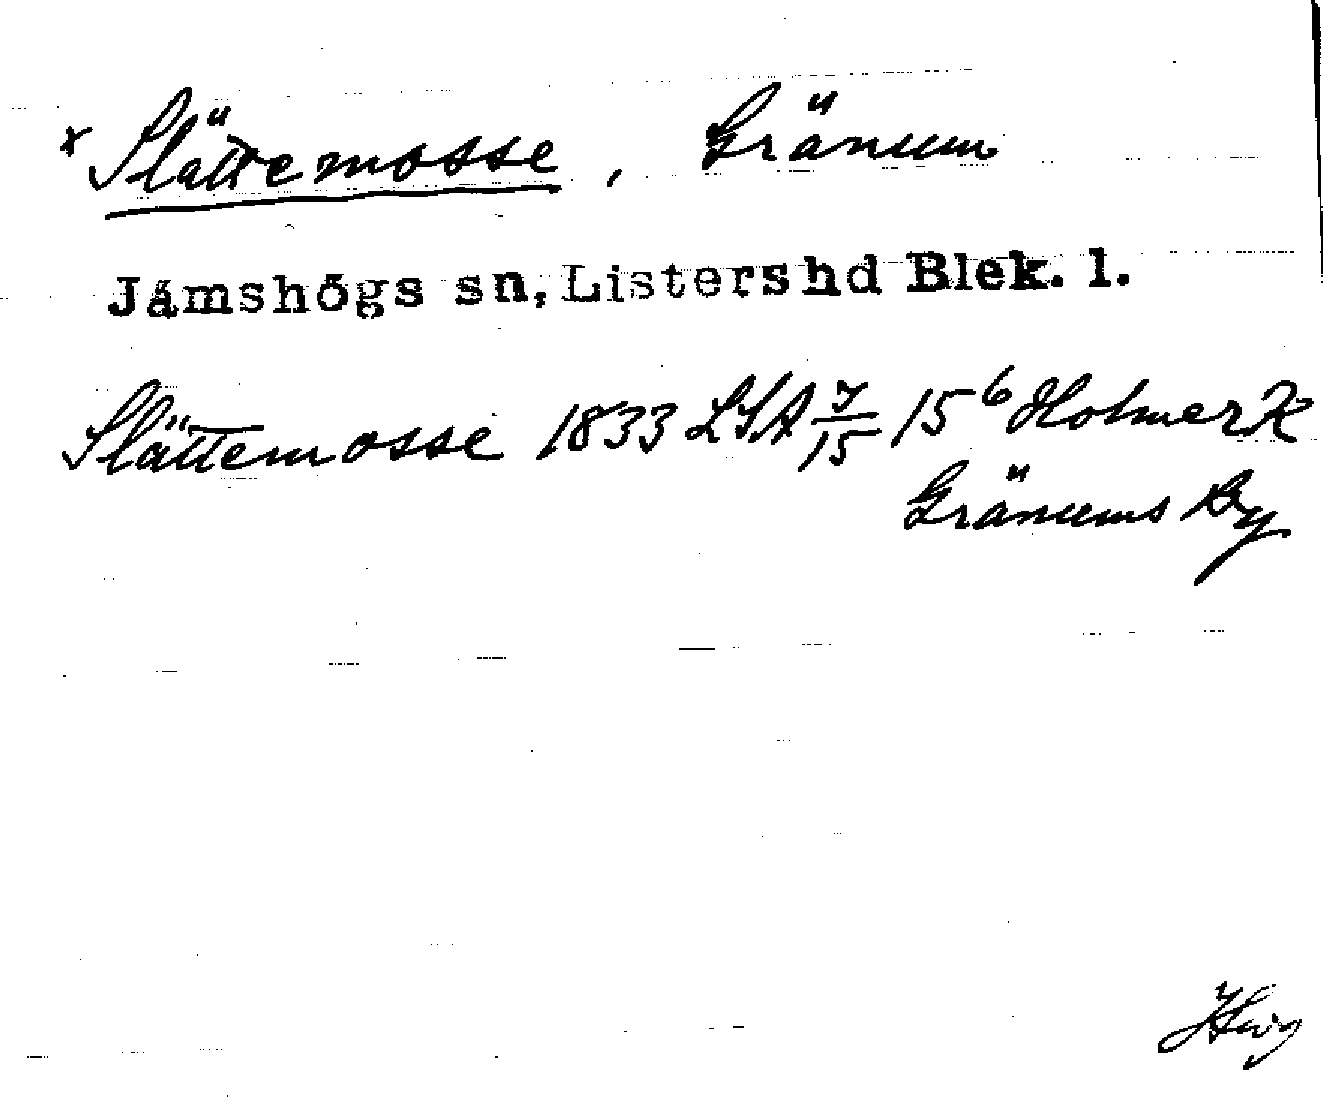 x Slättemosse, Gränum
Jämshögs sn, Listers hd Blek. l.
Slättemosse 1833 LSA 7/15 15⁶ Holmer K
Gränums By